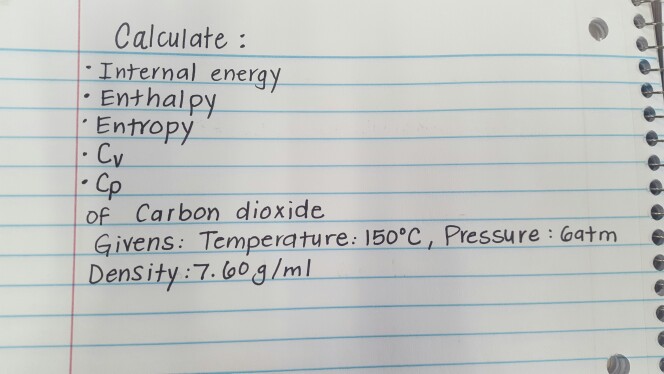 Calculate :
· Internal energy
· Enthalpy
· Entropy
· Cv
· Cp
of Carbon dioxide
Givens: Temperature: 150°C, Pressure: 6atm
Density: 7.60g/ml